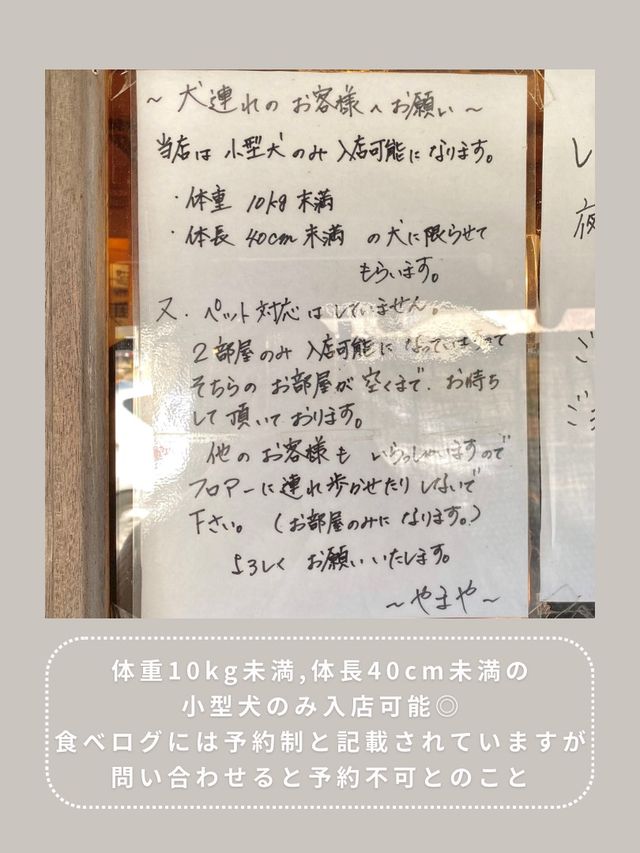 ～犬連れのお客様へお願い～
当店は小型犬のみ入店可能になります。
・体重 10kg 未満
・体長 40cm 未満 の犬に限らせて
もらいます。
又、ペット対応はしていません。
2部屋のみ 入店可能になっていますので
そちらの お部屋が空くまで、お待ち
して頂いております。
他のお客様も いらっしゃいますので
フロアーに連れ歩かせたりしないで
下さい。(お部屋のみになります。)
よろしく お願いいたします。
～やまや～
し
夜
ご
体重10kg未満,体長40cm未満の
小型犬のみ入店可能◎
食べログには予約制と記載されていますが
問い合わせると予約不可とのこと